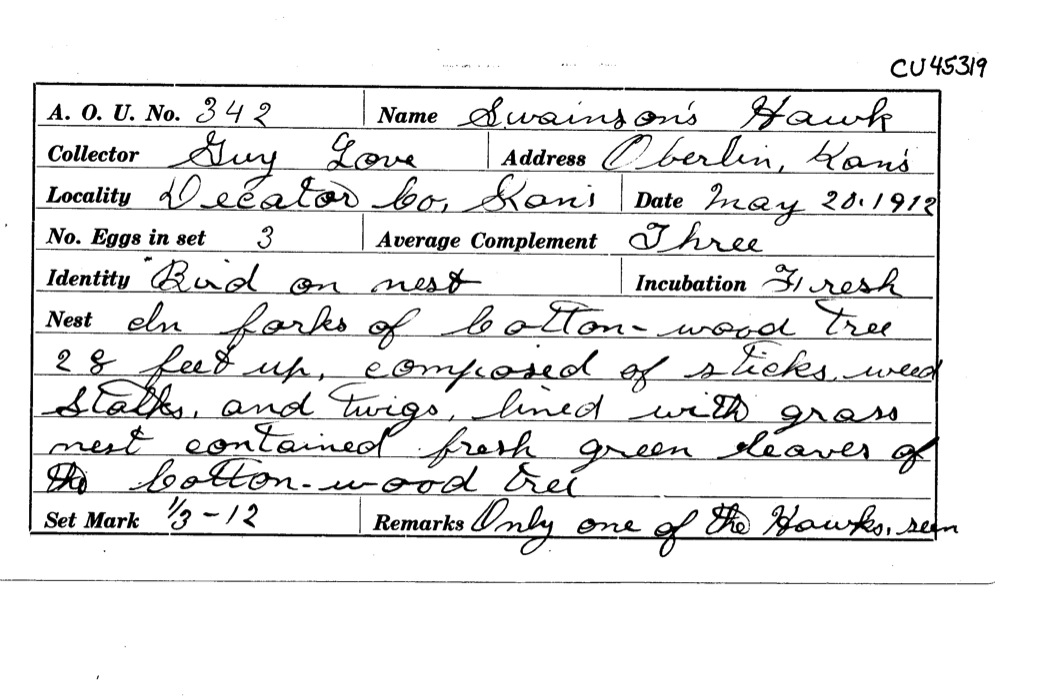 CU45319
A. O. U. No. 342 Name Swainson's Hawk
Collector Guy Love Address Oberlin, Kans
Locality Decator Co, Kans Date May 20.1912
No. Eggs in set 3 Average Complement Three
Identity Bird on nest Incubation Fresh
Nest In forks of Cotton-wood Tree
28 feet up, composed of sticks, weed
stalks, and Twigs, lined with grass
nest contained fresh green leaves of
the Cotton-wood tree
Set Mark 1/3-12 Remarks Only one of the Hawks, seen